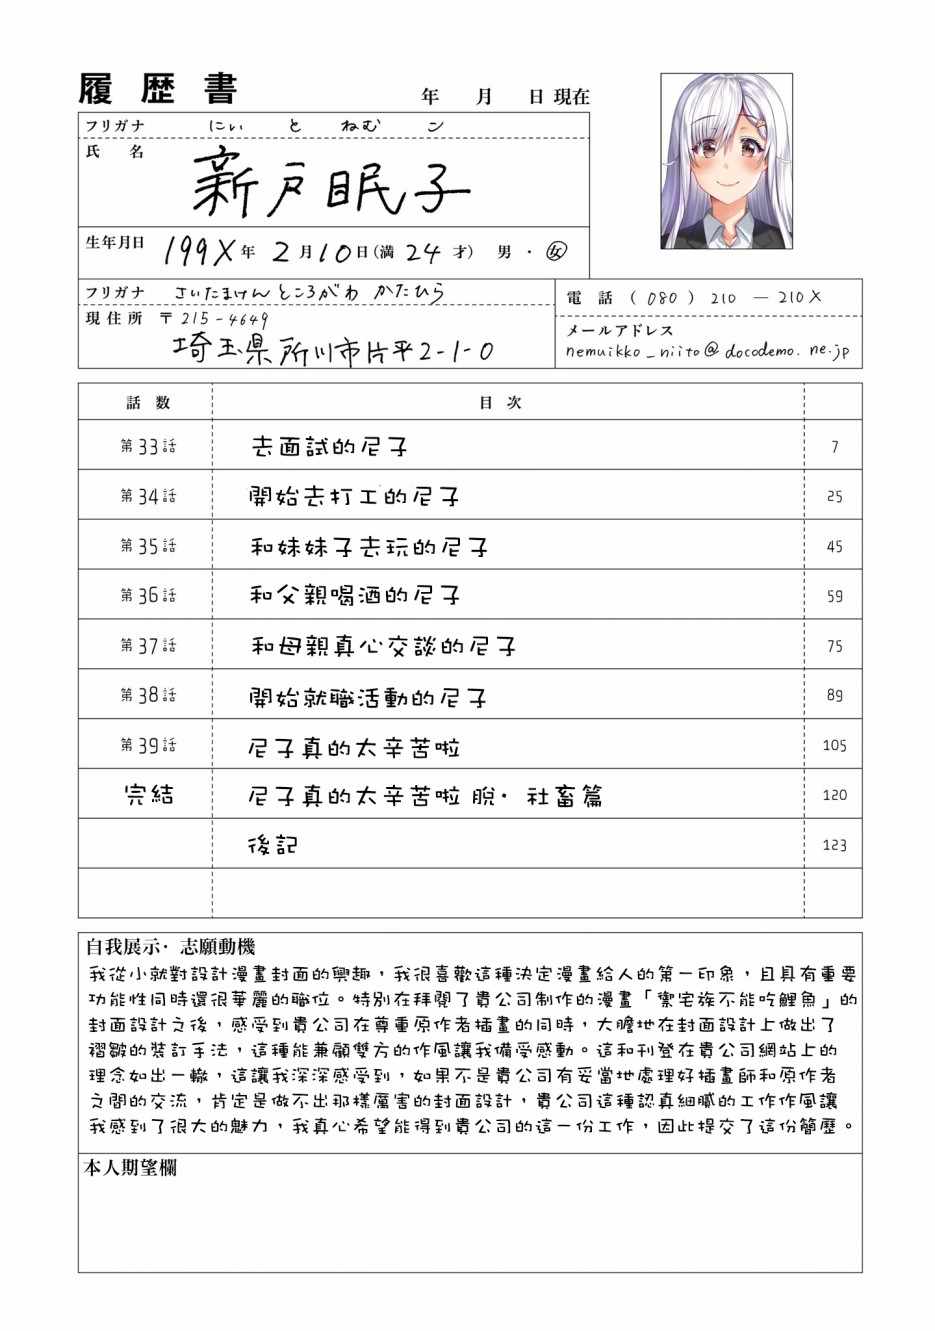 履歴書
年 月 日 現在
フリガナ にい と ねむ こ
氏 名 新戸眠子
生年月日 199X年 2月10日(満 24 才) 男・女
フリガナ さいたまけん ところがわ かたひら
電 話 (080) 210 — 210X
現住所 〒215-4649
埼玉県所川市片平2-1-0
メールアドレス
nemuikko_niito@docodemo.ne.jp
話 数 目 次
第33話 去面試的尼子 7
第34話 開始去打工的尼子 25
第35話 和妹妹子去玩的尼子 45
第36話 和父親喝酒的尼子 59
第37話 和母親真心交談的尼子 75
第38話 開始就職活動的尼子 89
第39話 尼子真的太辛苦啦 105
完結 尼子真的太辛苦啦 脫・社畜篇 120
後記 123
自我展示・志願動機
我從小就對設計漫畫封面的興趣，我很喜歡這種決定漫畫給人的第一印象，且具有重要
功能性同時還很華麗的職位。特別在拜閱了貴公司制作的漫畫「禦宅族不能吃鯉魚」的
封面設計之後，感受到貴公司在尊重原作者插畫的同時，大膽地在封面設計上做出了
褶皺的裝訂手法，這種能兼顧雙方的作風讓我備受感動。這和刊登在貴公司網站上的
理念如出一轍，這讓我深深感受到，如果不是貴公司有妥當地處理好插畫師和原作者
之間的交流，肯定是做不出那樣厲害的封面設計，貴公司這種認真細膩的工作作風讓
我感到了很大的魅力，我真心希望能得到貴公司的這一份工作，因此提交了這份簡歷。
本人期望欄